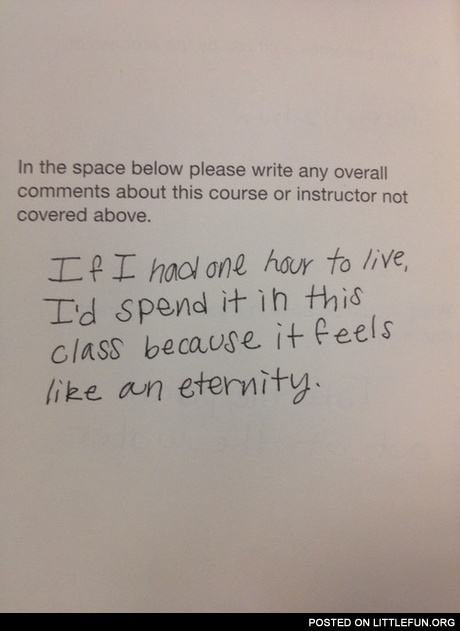 In the space below please write any overall
comments about this course or instructor not
covered above.
If I had one hour to live,
I'd spend it in this
class because it feels
like an eternity.
POSTED ON LITTLEFUN.ORG